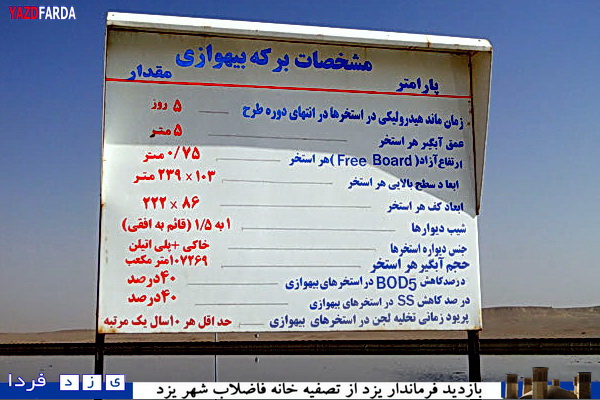 YAZDFARDA
مشخصات برکه بیهوازی
پارامتر مقدار
زمان ماند هیدرولیکی در استخرها در انتهای دوره طرح ۵ روز
عمق آبگیر هر استخر ۵ متر
ارتفاع آزاد (Free Board) هر استخر ۰/۷۵ متر
ابعاد سطح بالایی هر استخر ۱۰۳ × ۲۳۹ متر
ابعاد کف هر استخر ۸۶ × ۲۲۲
شیب دیوارها ۱ به ۱/۵ (قائم به افقی)
جنس دیواره استخرها خاکی + پلی اتیلن
حجم آبگیر هر استخر ۱۰۷۲۶۹ متر مکعب
درصد کاهش BOD5 در استخرهای بیهوازی ۴۰ درصد
درصد کاهش SS در استخرهای بیهوازی ۴۰ درصد
پریود زمانی تخلیه لجن در استخرهای بیهوازی حداقل هر ۱۰ سال یک مرتبه
بازدید فرماندار یزد از تصفیه خانه فاضلاب شهر یزد
یزد فردا